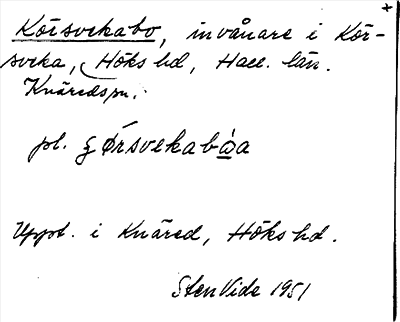 +
Körsvekabo, invånare i Kör-
sveka, Höks hd, Hall. län.
Knäredspn.
pl. ʒørsvekabòa
Uppt. i Knäred, Höks hd.
Sten Vide 1951